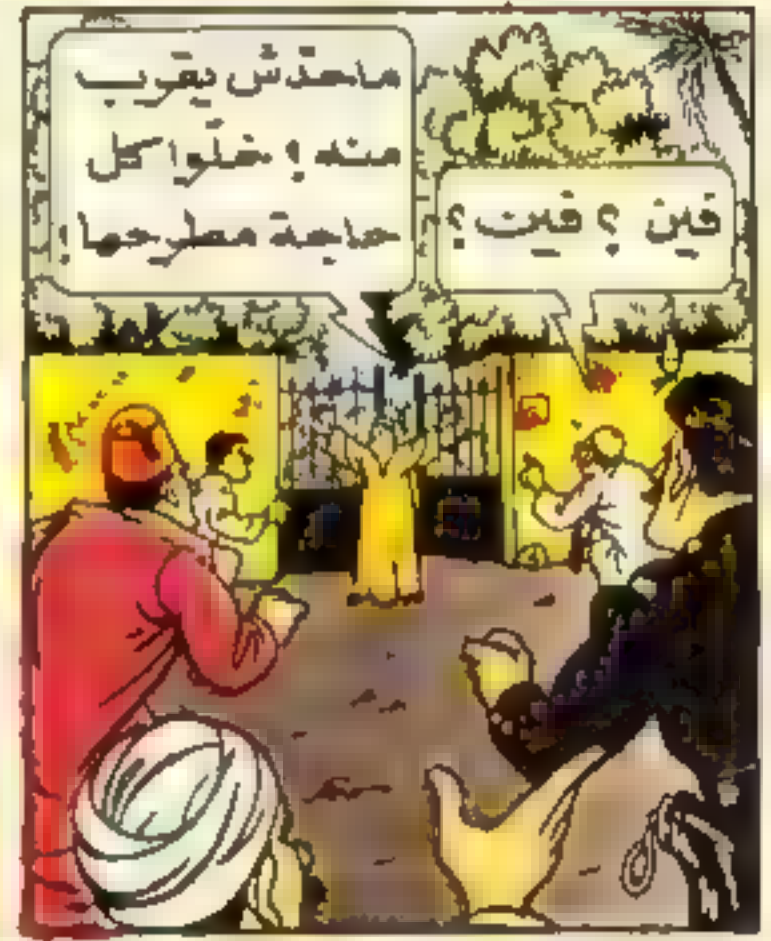 فين ؟ فين ؟
ماحدّش يقرب
منه ! خلّوا كل
حاجة مطرحها !